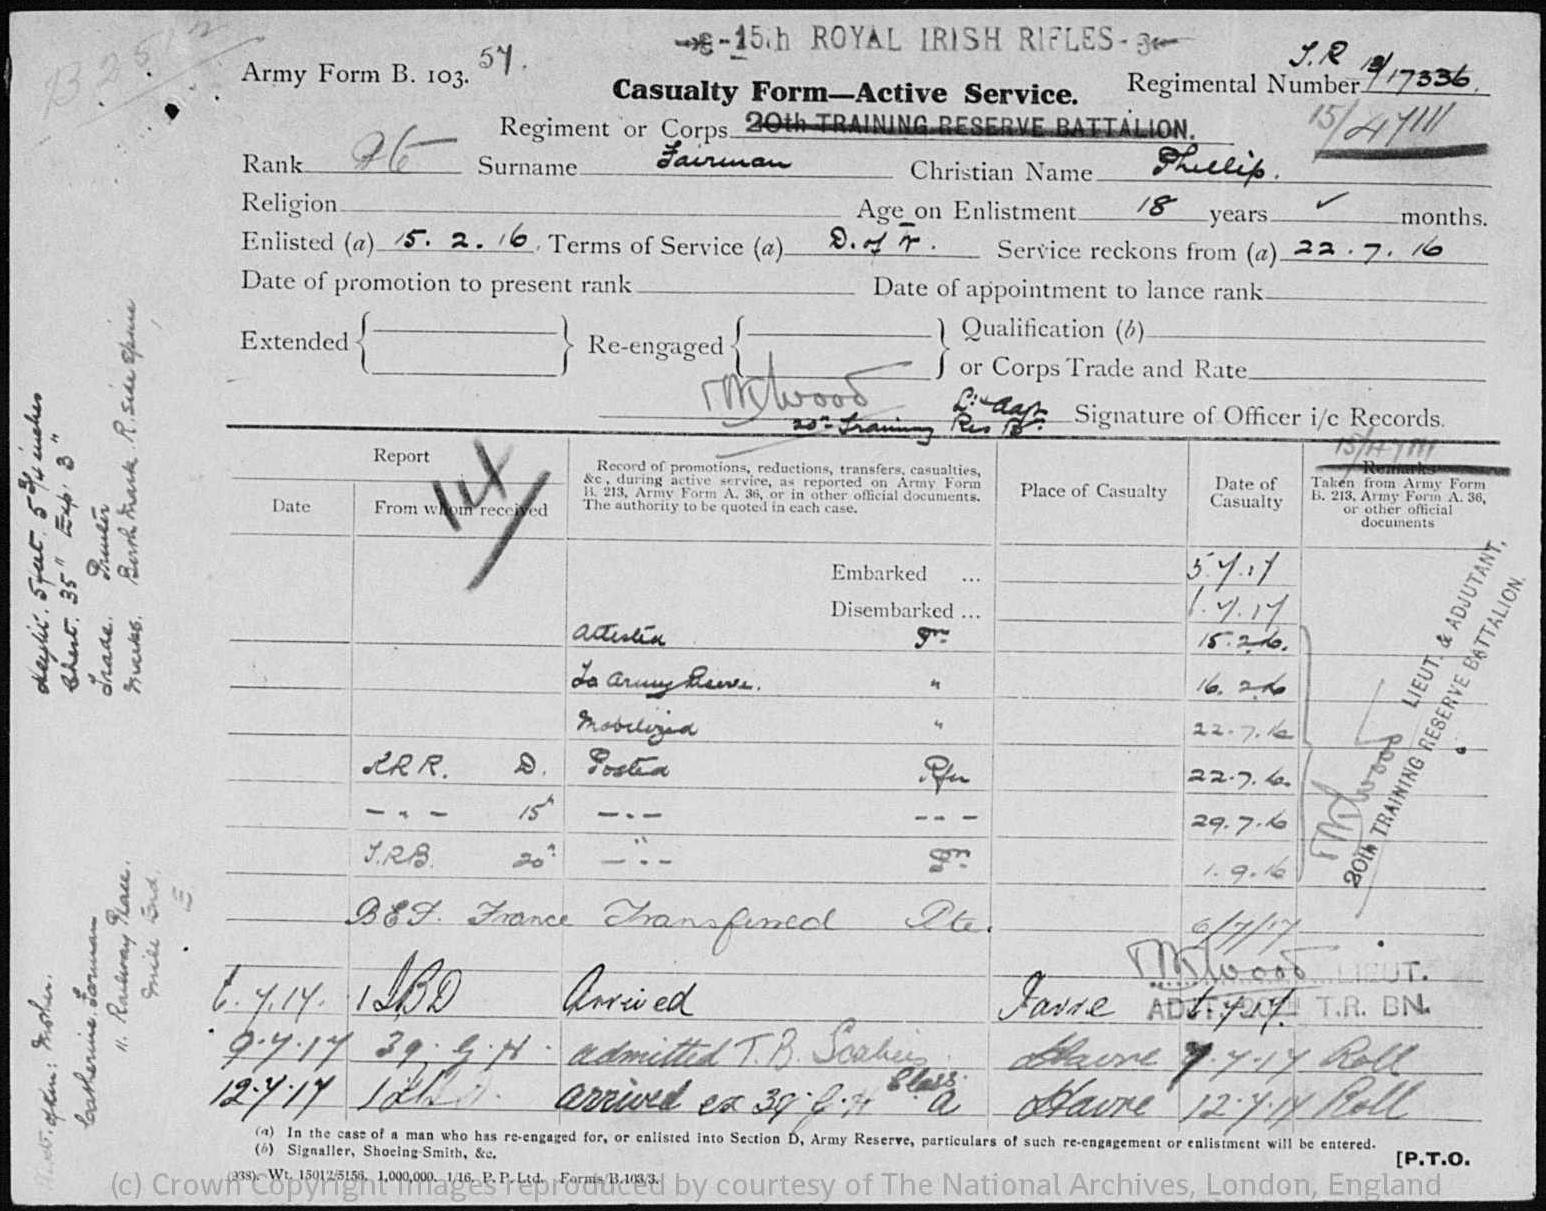 -15th ROYAL IRISH RIFLES-
Army Form B. 103. 57.
T.R 13/17336.
Casualty Form—Active Service.
Regimental Number
15/47111
Regiment or Corps 20th TRAINING RESERVE BATTALION.
Rank Pte Surname Fairman Christian Name Phillip.
Religion Age on Enlistment 18 years ✓ months.
Enlisted (a) 15. 2. 16. Terms of Service (a) D. of W. Service reckons from (a) 22. 7. 16
Date of promotion to present rank Date of appointment to lance rank
Extended Re-engaged Qualification (b)
or Corps Trade and Rate
Wood
Lt & Adjt Signature of Officer i/c Records.
20th Training Res Bn.
15/47111
Report
Date From whom received
Record of promotions, reductions, transfers, casualties,
&c., during active service, as reported on Army Form
B. 213, Army Form A. 36, or in other official documents.
The authority to be quoted in each case.
Place of Casualty
Date of Casualty
Remarks
Taken from Army Form
B. 213, Army Form A. 36,
or other official
documents
Embarked ... 5.7.17
Disembarked ... 6.7.17
Attested Pn 15.2.16.
To Army Reserve. " 16.2.16
Mobilized " 22.7.16
KRR. D. Posted Rfn 22.7.16.
— " — 15th — " — — — — 29.7.16
T.R.B. 20th — " — Pn 1.9.16
BEF. France Transferred Pte. 6/7/17
Wood LIEUT.
ADJT. 20TH T.R. BN.
6.7.17. 1 IBD Arrived Havre 6.7.17
9.7.17 39.G.H. admitted T.B. Scabies Havre 7.7.17 Roll
12.7.17 1 IBD. arrived ex 39 G.H Class A Havre 12.7.17 Roll
Wood LIEUT. & ADJUTANT,
20th TRAINING RESERVE BATTALION.
Height. 5 feet. 5 3/4 inches
Chest. 35" Exp. 3"
Trade. Printer
Marks. Birth Mark. R. side spine
Next of kin: Mother.
Catherine Farman
11. Railway Place.
Mile End.
E
(a) In the case of a man who has re-engaged for, or enlisted into Section D, Army Reserve, particulars of such re-engagement or enlistment will be entered.
(b) Signaller, Shoeing-Smith, &c.
[P.T.O.
(938). Wt. 15012/5156. 1,000,000. 1/16. P. P. Ltd. Forms/B.103/3.
(c) Crown Copyright Images reproduced by courtesy of The National Archives, London, England